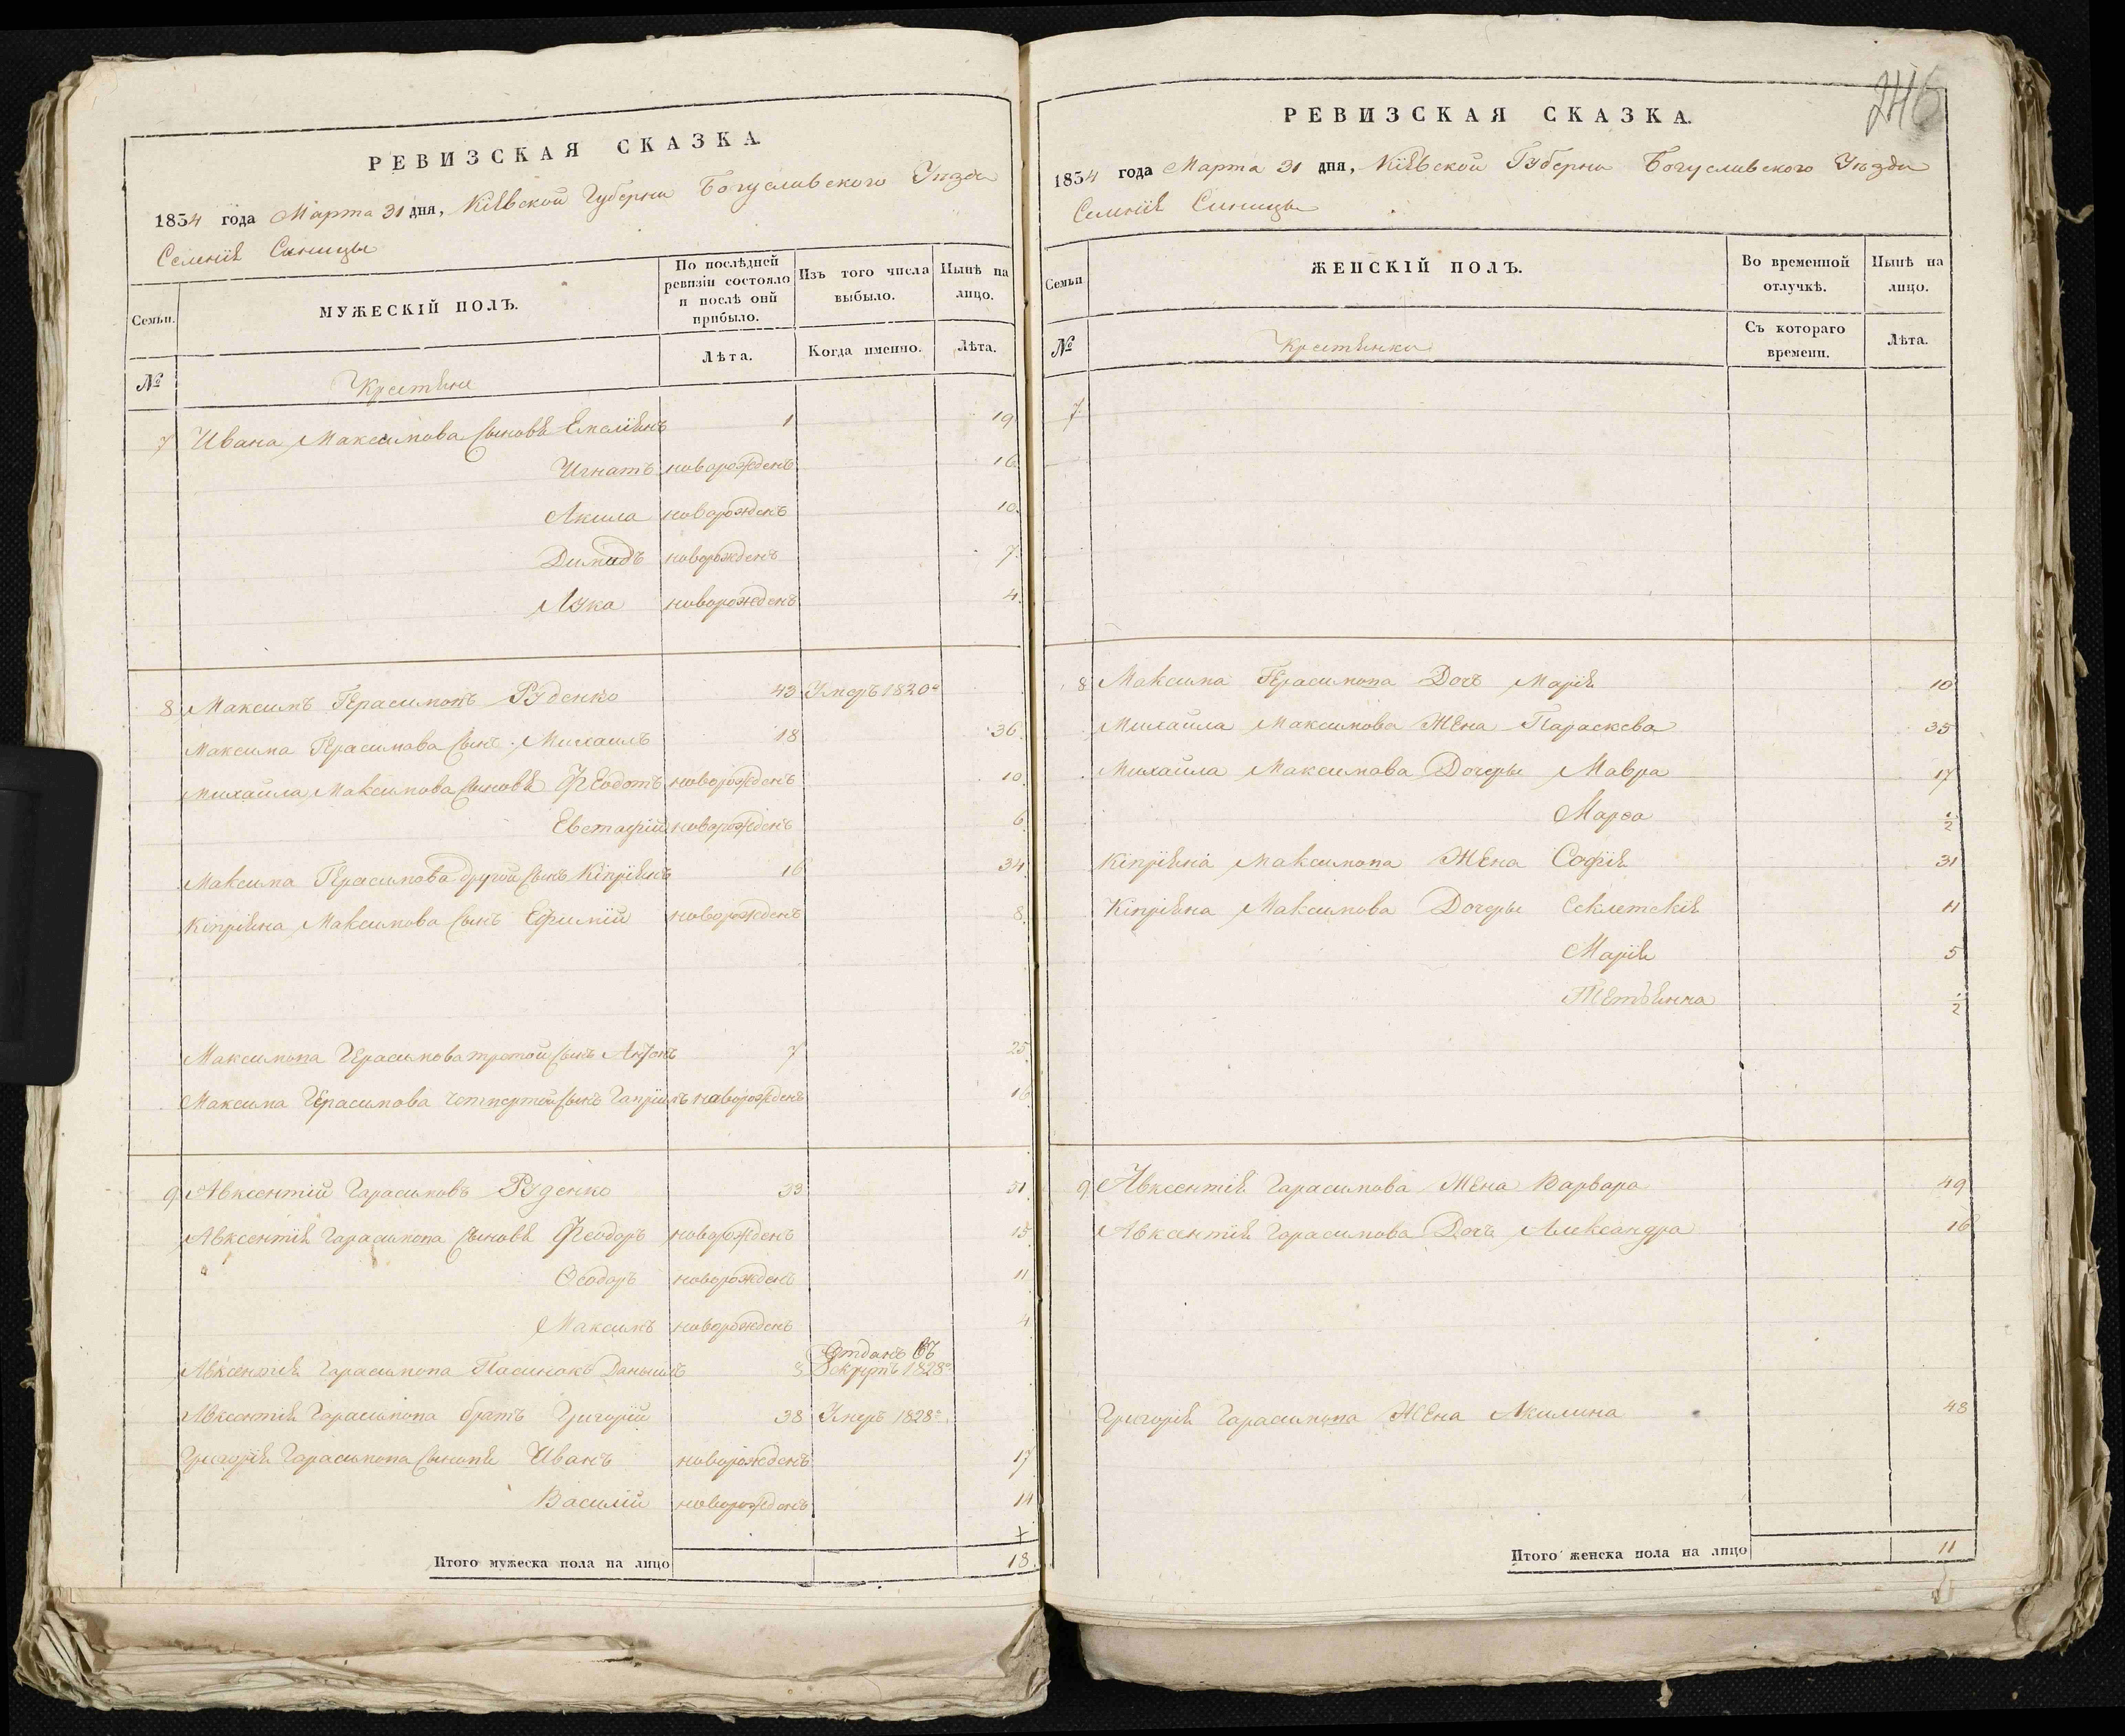 РЕВИЗСКАЯ СКАЗКА.
1834 года Марта 31 дня, Кіевской Губерни Богуславского Уезда
Селенія Синицы
Семьи.
МУЖЕСКІЙ ПОЛЪ.
По послѣдней ревизіи состояло и послѣ оній прибыло.
Изъ того числа выбыло.
Нынѣ на лицо.
№
Крестяне
Лѣта.
Когда именно.
Лѣта.
7 Ивана Максимова Сыновя Емеліянъ 1 19
Игнатъ новорожденъ 16
Акила новорожденъ 10
Димидъ новорожденъ 7
Лука новорожденъ 4
8 Максимъ Герасимовъ Руденко 43 Умеръ 1820го
Максима Герасимова Сынъ Михаилъ 18 36
Михайла Максимова Сыновя Феодотъ новорожденъ 10
Евстафій новорожденъ 6
Максима Герасимова другой Сынъ Кіпріянъ 16 34
Кіпріяна Максимова Сынъ Ефимій новорожденъ 8
Максимова Герасимова третой Сынъ Антонъ 7 25
Максима Герасимова четвертой Сынъ Гавріилъ новорожденъ 16
9 Авксентій Гарасимовъ Руденко 33 51
Авксентія Гарасимова Сыновя Феодоръ новорожденъ 15
Ѳеодоръ новорожденъ 11
Максимъ новорожденъ 4
Авксентія Гарасимова Пасинокъ Даныилъ 8 Отданъ въ Рекрутъ 1828го
Авксентія Гарасимова братъ Григорій 38 Умеръ 1828го
Григорія Гарасимова Сыновя Иванъ новорожденъ 17
Василій новорожденъ 14
Итого мужеска пола на лицо 18
246
РЕВИЗСКАЯ СКАЗКА.
1834 года Марта 31 дня, Кіевской Губерни Богуславского Уезда
Селенія Синицы
Семьи
ЖЕНСКІЙ ПОЛЪ.
Во временной отлучкѣ.
Нынѣ на лицо.
№
Крестянки
Съ котораго времени.
Лѣта.
7
8 Максима Герасимова Дочь Марія 10
Михайла Максимова Жена Параскева 35
Михайла Максимова Дочеры Мавра 17
Марѳа 1/2
Кіпріяна Максимова Жена Софія 31
Кіпріяна Максимова Дочеры Секлетекія 11
Марія 5
Тетьянна 1/2
9 Авксентія Гарасимова Жена Варвара 49
Авксентія Гарасимова Дочь Александра 16
Григорія Гарасимова Жена Акилина 48
Итого женска пола на лицо 11